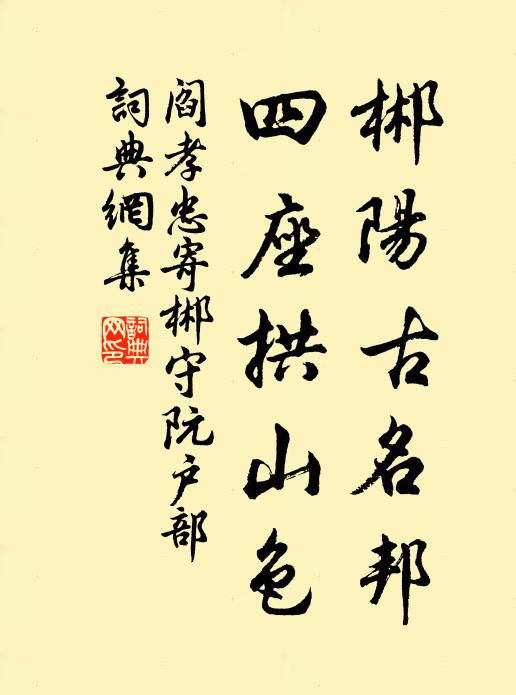 郴陽古名邦
四座拱山色
閻孝忠寄郴守阮户部
詞典網集
詞典
网印